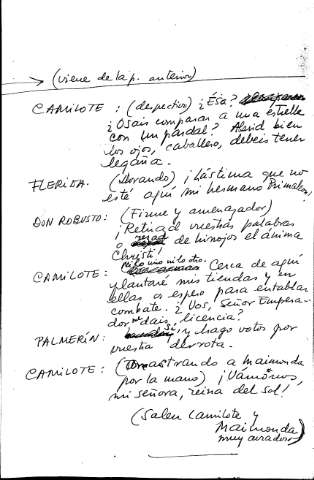 (viene de la p. anterior)
CAMILOTE : (despectivo) ¿Esa?
¿Osáis comparar a una estrella
con un pardal? Abrid bien
los ojos, caballero, debéis tener
legaña.
FLERIDA. (Llorando) ¡Lástima que no
esté aquí mi hermano Primaleón!
DON ROBUSTO: (Firme y amenazador)
¡Retirad vuestras palabras
o rezad de hinojos el ánima
Christi!
CAMILOTE: Ni lo uno ni lo otro. Cerca de aquí
plantaré mis tiendas y en
ellas os espero para entablar
combate. ¿Vos, Señor Empera-
dor me dais licencia?
PALMERÍN: Sí, y hago votos por
vuestra derrota.
CAMILOTE: (arrastrando a Maimonda
por la mano) ¡Vámonos,
mi señora, reina del sol!
(Salen Camilote y
Maimonda
muy airados)